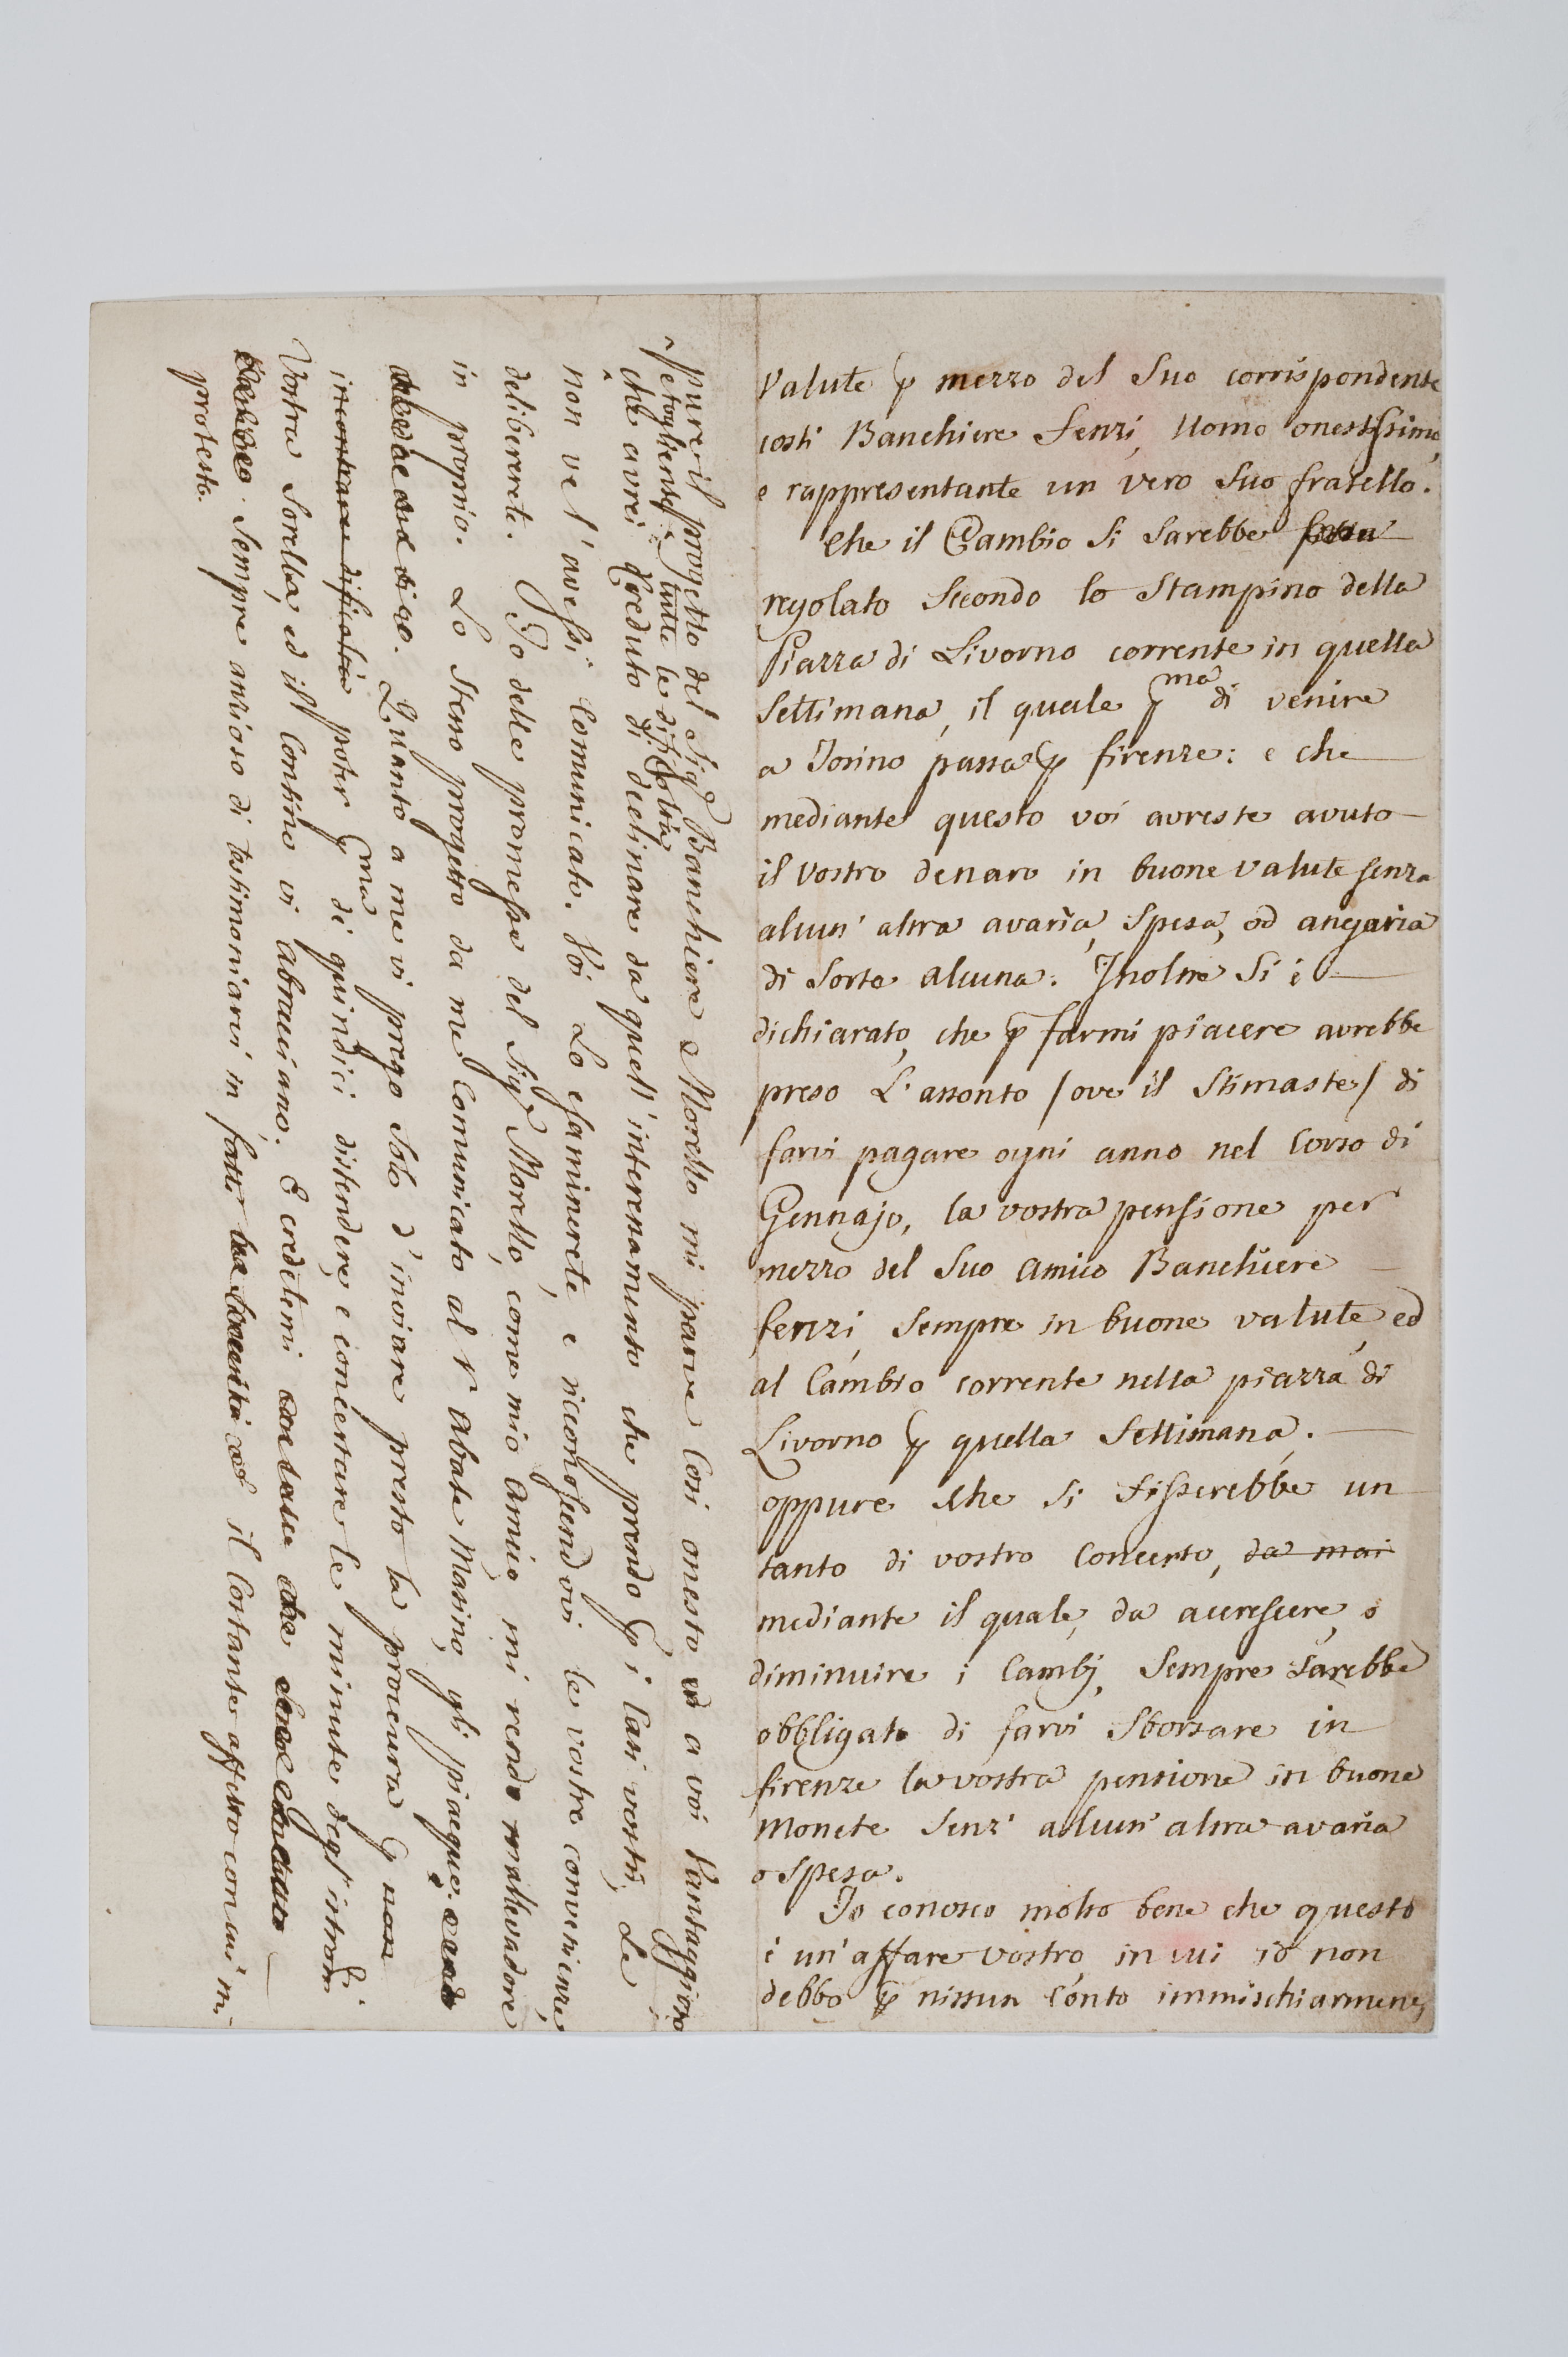 Valute p mezzo del Suo corrispondente
costì Banchiere Fenzi, Uomo onestissimo,
e rappresentante un vero Suo fratello.
Che il Cambio si Sarebbe
regolato Secondo lo Stampino della
Piazza di Livorno corrente in quella
Settimana, il quale pma di venire
a Torino passa p firenze: e che
mediante questo voi avreste avuto
il Vostro denaro in buone valute senza
alcun' altra avarìa, Spesa, od angaria
di Sorte alcuna. Inoltre Si è
dichiarato, che p farmi piacere avrebbe
preso L'assonto /ove il Stimaste/ di
farvi pagare ogni anno nel Corso di
Gennajo, la vostra pensione per
mezzo del Suo Amico Banchiere
fenzi, Sempre in buone valute, ed
al Cambio corrente nella piazza di
Livorno p quella Settimana.
oppure che si fisserebbe un
tanto di vostro Concerto, da mai
mediante il quale, da accrescere, o
diminuire i Cambj, Sempre Sarebbe
obbligato di farvi Sborsare in
firenze la vostra pensione in buone
Monete Senz' alcun' altra avaria
o Spesa.
Io conosco molto bene che questo
è un' affare vostro, in cui io non
debbo p nissun Conto immischiarmene,
pure il progetto del Sigr Banchiere Morello mi parve Così onesto a voi Vantaggioso
e togliente tutte le difficoltà
che avrei Creduto di declinare da quell' interessamento che prendo p i Casi vostri, Se
non ve l' avessi Comunicato. Voi Lo esaminerete e riconoscendovi le vostre convenienze,
delibererete. Io delle promesse del Sigr Morello, come mio Amico mi rendo mallevadore
in proprio. Lo Stesso progetto da me Comunicato al r Abate Masino, gli piacque.
Quanto a me vi prego Solo d' inviare presto la procura p non
incontrare dificoltà poter pma di quindici distendere, e concertare le minute degl' istrom.
Vostra Sorella, ed il Contino vi Abracciano. E credetemi
Sempre ansioso di testimoniarvi in fatti il Costante affetto con cui mi
protesto.